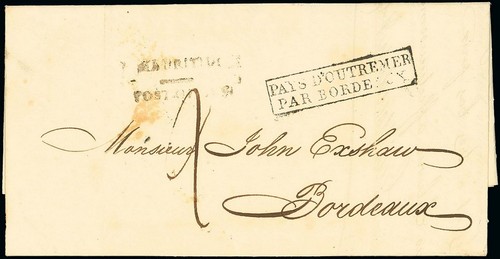 MAURITIUS
POST
PAYS D'OUTREMER
PAR BORDEAUX
Monsieur John Exshaw
Bordeaux